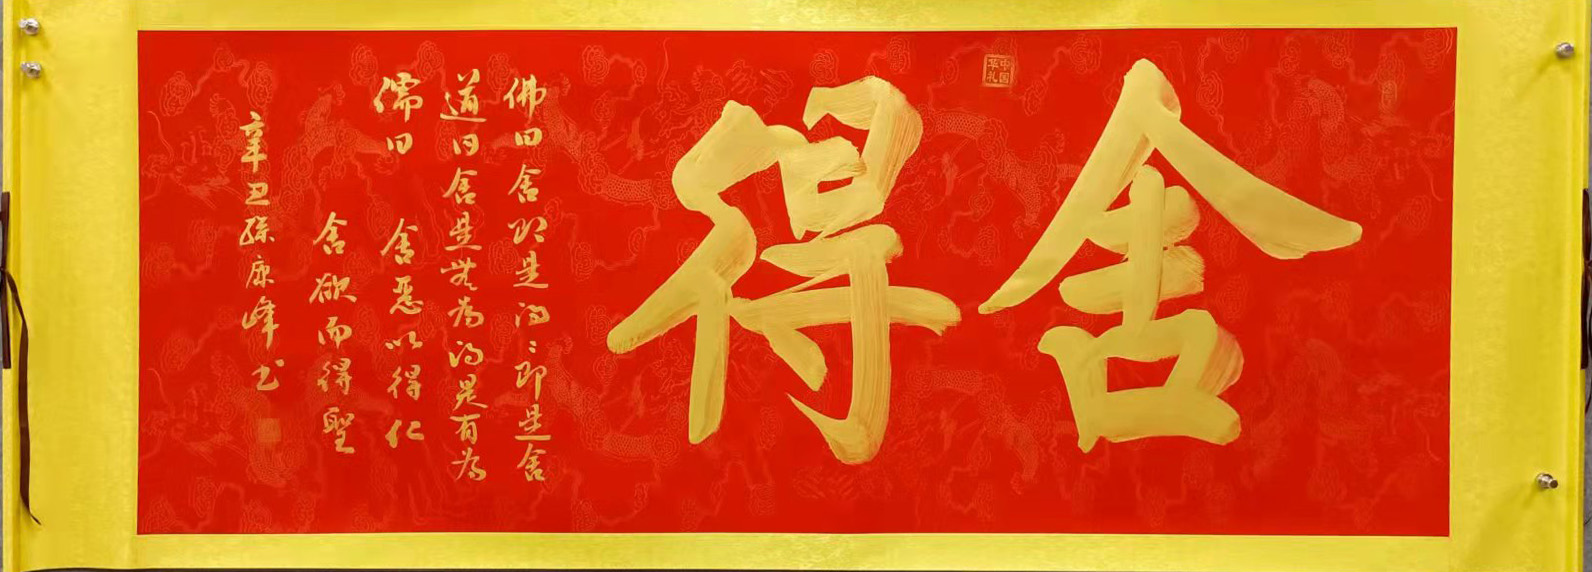 中国
华礼
舍得
佛曰舍即是得得即是舍
道曰舍是无为得是有为
儒曰 舍恶以得仁
舍欲而得聖
辛丑孫康峰书